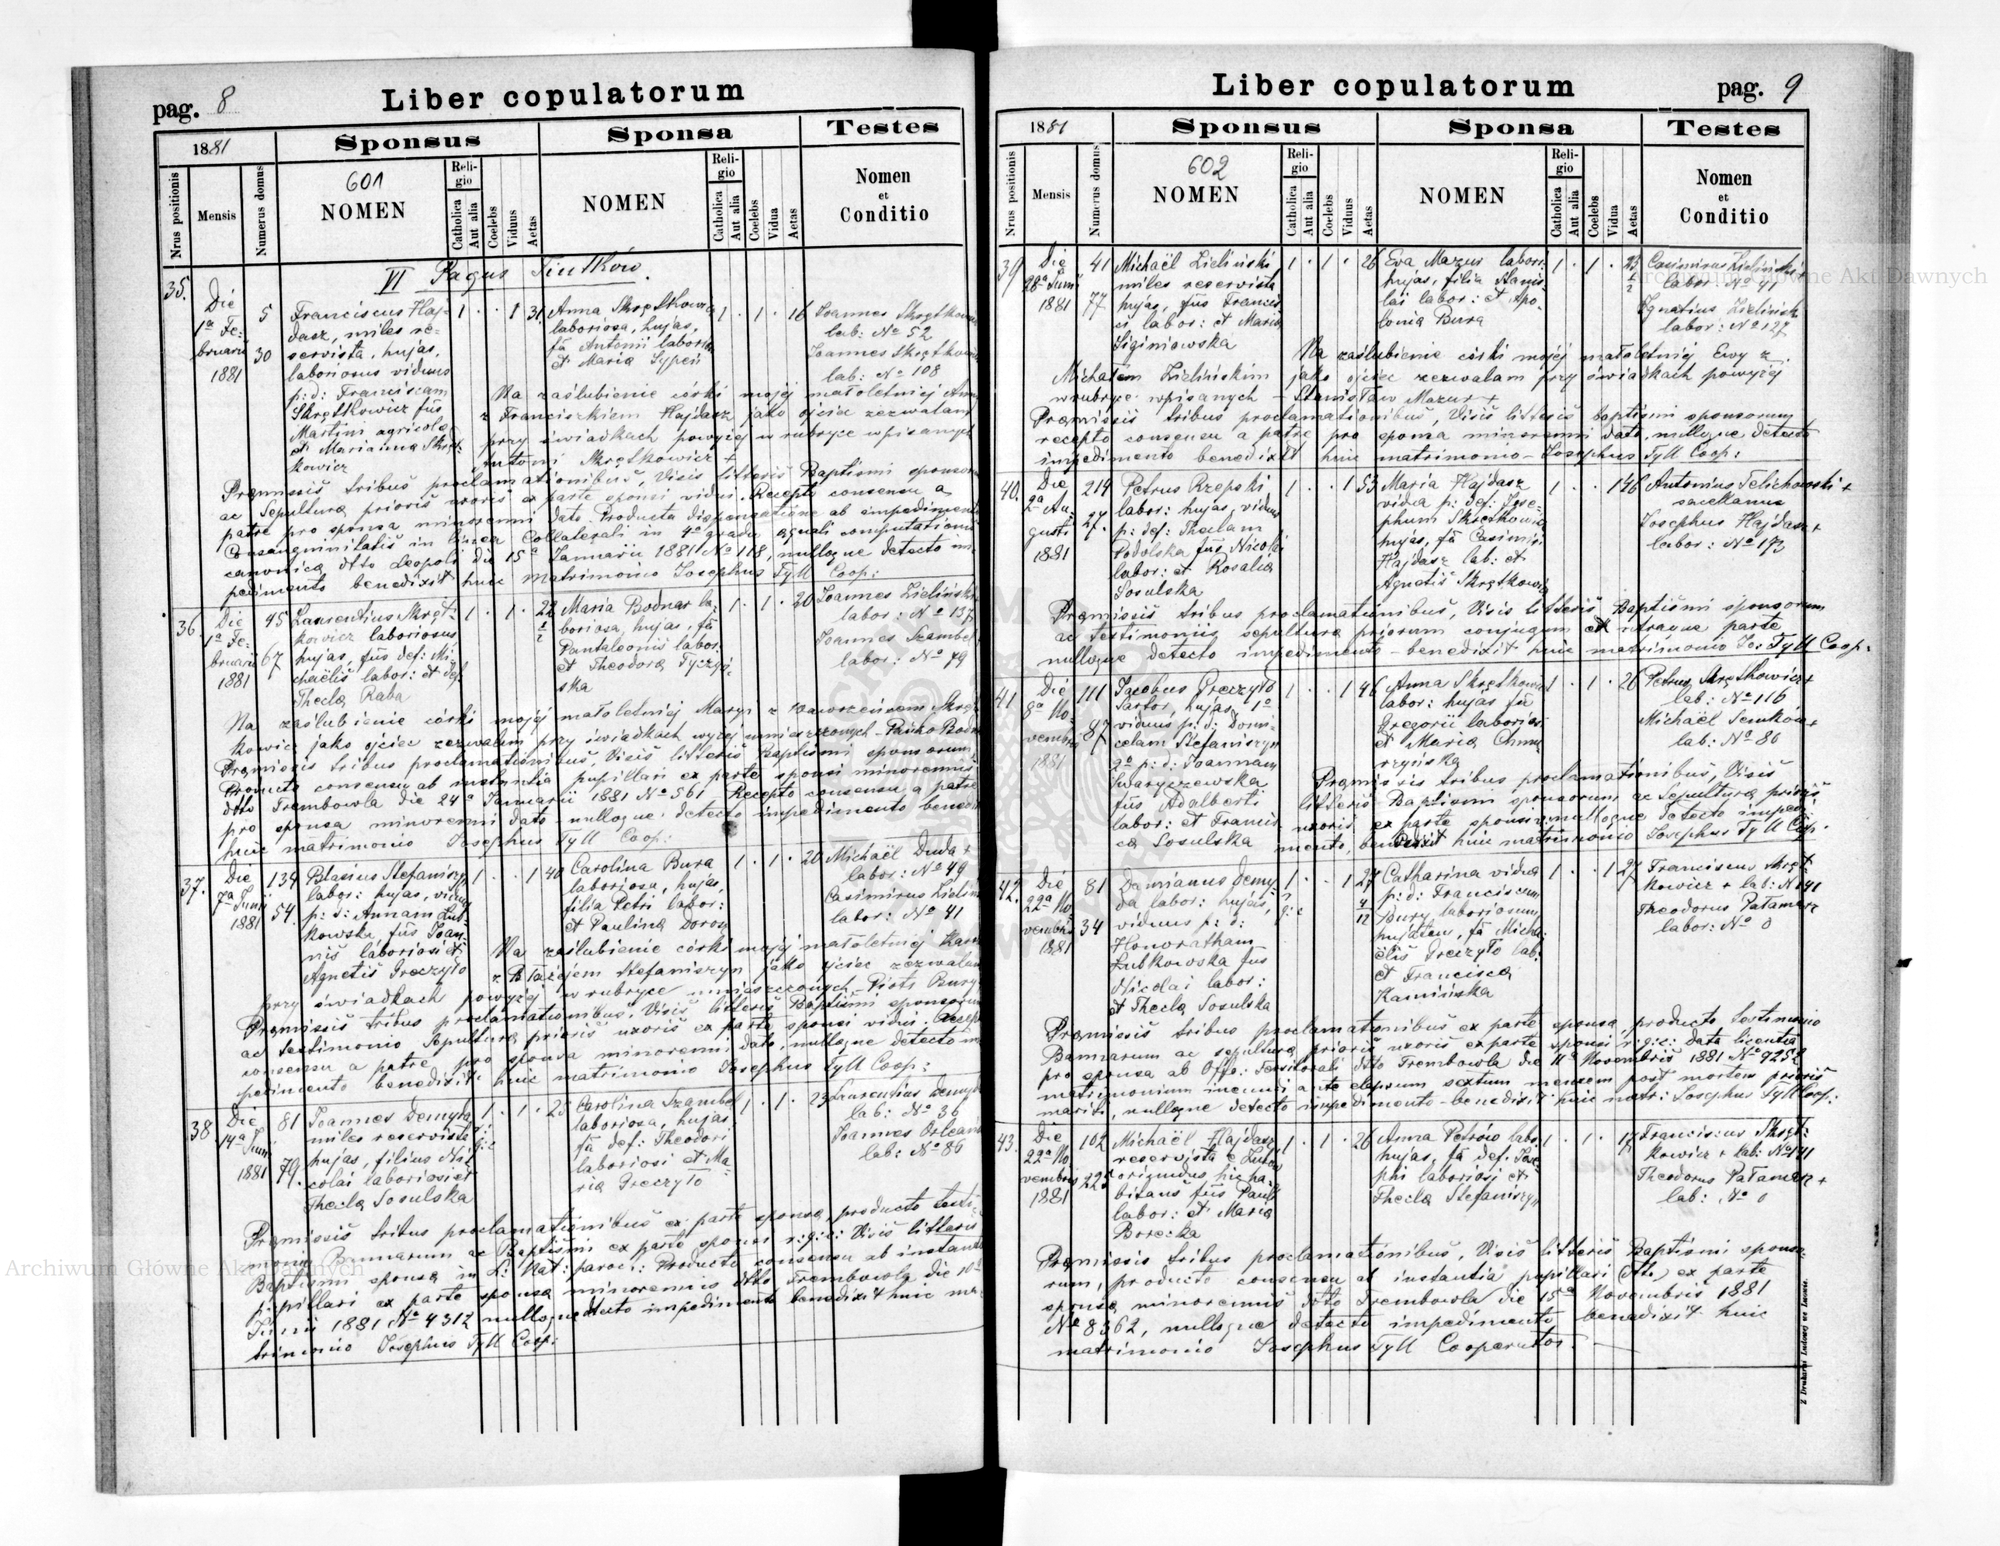 pag. 8
Liber copulatorum
1881
Sponsus
Sponsa
Testes
Nrus positionis
Mensis
Numerus domus
601
NOMEN
Religio
Catholica
Aut alia
Coelebs
Viduus
Aetas
NOMEN
Religio
Catholica
Aut alia
Coelebs
Vidua
Aetas
Nomen
et
Conditio
VI Pagus
35.
Die
1ª Fe-
bruarii
1881
5
30
Franciscus Haj-
dasz, miles re-
servista, hujas,
laboriosus viduus
p: d: Franciscam
Skrętkowicz fus
Martini agricola
et Marianna Skręt-
kowicz
1 . . 1 31
Anna Skrętkowicz
laboriosa, hujas,
fa Antonii laborios
et Maria Sypeń
1 . 1 . 16
Joannes Skrętkowicz
lab: No 52
Joannes Skrętkowicz
lab: No 108
Na zaślubienie córki mojej małoletniej Anny
z Franciszkiem Hajdasz jako ojciec zezwalam
przy świadkach powyżej w rubryce wpisanych
Antoni Skrętkowicz +
Præmissis tribus proclamationibus, Visis litteris Baptismi sponsorum
ac Sepulturæ prioris uxoris ex parte sponsi vidui. Recepto consensu a
patre pro sponsa minorenni dato. Producta dispensatione ab impedimento
consanguinitatis in linea Collaterali in 4º gradu æquali computationis
canonicæ dtto Leopoli die 15ª Januarii 1881 No 118, nulloque detecto im-
pedimento benedixit huic matrimonio Josephus Tyll Coop:
36
Die
1ª Fe-
bruarii
1881
45
67
Laurentius Skręt-
kowicz laboriosus
hujas, fus def: Mi-
chaëlis labor: et def:
Thecla Raba
1 . 1 . 22 1/2
Maria Bodnar la-
boriosa, hujas, fa
Pantaleonis labor:
et Theodora Tyczyń-
ska
1 . 1 . 20
Joannes Zieliński
labor: No 137
Joannes Szambel
labor: No 79
Na zaślubienie córki mojej małoletniej Maryi z Wawrzeńcem Skręt-
kowicz jako ojciec zezwalam przy świadkach wyżej umieszczonych - Pańko Bodnar
Præmissis tribus proclamationibus, Visis litteris Baptismi sponsorum,
Producto consensu ab instantia pupillari ex parte sponsi minorennis
dtto Trembowla die 24ª Januarii 1881 No 561 Recepto consensu a patre
pro sponsa minorenni dato - nulloque detecto impedimento benedixit
huic matrimonio Josephus Tyll Coop:
37.
Die
7ª Junii
1881
139
54.
Blasius Stefaniszyn
labor: hujas, viduus
p: d: Annam Lub-
kowska fus Joan-
nis laboriosi et
Agnetis Greczyło
1 . . 1 40
Carolina Bura
laboriosa, hujas,
filia Petri labor:
et Paulina Dorosz
1 . 1 . 20
Michaël Duda +
labor: No 49
Casimirus Zieliński
labor: No 41
Na zaślubienie córki mojej małoletniej
z Błażejem Stefaniszyn jako ojciec zezwalam
przy świadkach powyżej w rubryce umieszczonych - Piotr Bury
Præmissis tribus proclamationibus, Visis litteris Baptismi sponsorum
ac testimonio Sepulturæ prioris uxoris ex parte sponsi vidui. Recepto
consensu a patre pro sponsa minorenni dato, nulloque detecto im-
pedimento benedixit huic matrimonio Josephus Tyll Coop:
38
Die
14ª Junii
1881
81
79.
Joannes Demyda
miles reservista
hujas, filius Ni-
colai laboriosi et
Thecla Sosulska
1 . 1 . 25
r: g: c:
Carolina Szambel
laboriosa, hujas
fa def: Theodori
laboriosi et Ma-
ria Greczyło
1 . 1 . 23
Laurentius Demyda
lab: No 36
Joannes
lab: No 86
Præmissis tribus proclamationibus ex parte sponsæ, producto testi-
monio Bannorum ac Baptismi ex parte sponsi r: g: c: Visis litteris
Baptismi sponsæ in L: Nat: paroc: Producto consensu ab instantia
pupillari ex parte sponsæ minorennis dtto Trembowla die 10ª
Junii 1881 No 4312 nulloque detecto impedimento benedixit huic ma-
trimonio Josephus Tyll Coop:
Liber copulatorum
pag. 9
1881
Sponsus
Sponsa
Testes
Nrus positionis
Mensis
Numerus domus
602
NOMEN
Religio
Catholica
Aut alia
Coelebs
Viduus
Aetas
NOMEN
Religio
Catholica
Aut alia
Coelebs
Vidua
Aetas
Nomen
et
Conditio
39
Die
28ª Junii
1881
41
77
Michaël Zieliński
miles reservista
hujas, fus Francis-
ci labor: et Maria
Siginiowska
1 . 1 . 26
Eva Mazur labor:
hujas, filia Stanis-
lai labor: et Apo-
lonia Bura
1 . 1 . 23 1/2
Casimirus Zieliński
labor: No 41
Ignatius Zieliński
labor: No 127
Na zaślubienie córki mojej małoletniej Ewy z
Michałem Zielińskim jako ojciec zezwalam przy świadkach powyżej
w rubryce wpisanych - Stanisław Mazur +
Præmissis tribus proclamationibus, Visis litteris baptismi sponsorum
recepto consensu a patre pro sponsa minorenni dato, nulloque detecto
impedimento benedixit huic matrimonio - Josephus Tyll Coop:
40.
Die
2ª Au-
gusti
1881
214
27.
Petrus Rzepski
labor: hujas, viduus
p: def: Theclam
Podolska fus Nicolai
labor: et Rosalia
Sosulska
1 . . 1 53
Maria Hajdasz
vidua p: def: Jose-
phum Skrętkowicz
hujas, fa Casimiri
Hajdasz lab: et
Agnetis Skrętkowicz
1 . . 1 46
Antonius Telichowski +
sacellanus
Josephus Hajdasz +
labor: No 173
Præmissis tribus proclamationibus, Visis litteris Baptismi sponsorum
ac testimoniis sepulturæ priorum conjugum ex utraque parte
nulloque detecto impedimento - benedixit huic matrimonio Jos: Tyll Coop:
41
Die
8ª No-
vembris
1881
111
87
Jacobus Greczyło
Sartor, hujas, 1º
viduus p: d: Domi-
celam Stefaniszyn
2º p: d: Joannam
Swaryczewska
fus Adalberti
labor: et Francis-
ca Sosulska
1 . . 1 46
Anna Skrętkowicz
labor: hujas fa
Gregorii laborios:
et Maria Chmu-
rzyńska
1 . 1 . 26
Petrus Skrętkowicz +
lab: No 116
Michaël Senków +
lab: No 80
Præmissis tribus proclamationibus, Visis
litteris Baptismi sponsorum, ac Sepulturæ prioris
uxoris ex parte sponsi, nulloque detecto impedi-
mento, benedixit huic matrimonio Josephus Tyll Coop.
42.
Die
22ª No-
vembris
1881
81
34
Damianus Demy-
da labor: hujas,
viduus p: d:
Honoratham
Łubkowska fus
Nicolai labor:
et Thecla Sosulska
1 . . 1 24
r: g: c:
Catharina vidua
p: d: Franciscum
Bury laboriosum
hujatem, fa Micha-
ëlis Greczyło lab:
et Francisca
Kamińska
1 . . 1 27
Franciscus Skręt-
kowicz + lab: No 141
Theodorus Pałamarz
labor: No 0
Præmissis tribus proclamationibus ex parte sponsæ, producto testimonio
Bannorum ac sepulturæ prioris uxoris ex parte sponsi r: g: c: data licentia
pro sponsa ab Offo: Forsitorali dtto Trembowla die 11ª Novembris 1881 No 9252
matrimonium ineundi ante elapsum sextum mensem post mortem prioris
mariti, nulloque detecto impedimento - benedixit huic matr: Josephus Tyll Coop:
43.
Die
22ª No-
vembris
1881
102
225
Michaël Hajdasz
reservista e
oriundus hic ha-
bitans fus Pauli
labor: et Maria
Borecka
1 . 1 . 26
Anna Petrów labor:
hujas, fa def: Jose-
phi laboriosi et
Thecla Stefaniszyn
1 . 1 . 17
Franciscus Skręt-
kowicz + lab: No 141
Theodorus Pałamarz +
lab: No 0
Præmissis tribus proclamationibus, Visis litteris Baptismi sponso-
rum, producto consensu ab instantia pupillari (dtto) ex parte
sponsæ minorennis dtto Trembowla die 15ª Novembris 1881
No 8362, nulloque detecto impedimento benedixit huic
matrimonio Josephus Tyll Cooperator.
Z Drukarni Ludowej we Lwowie.
Archiwum Główne Akt Dawnych
Archiwum Główne Akt Dawnych